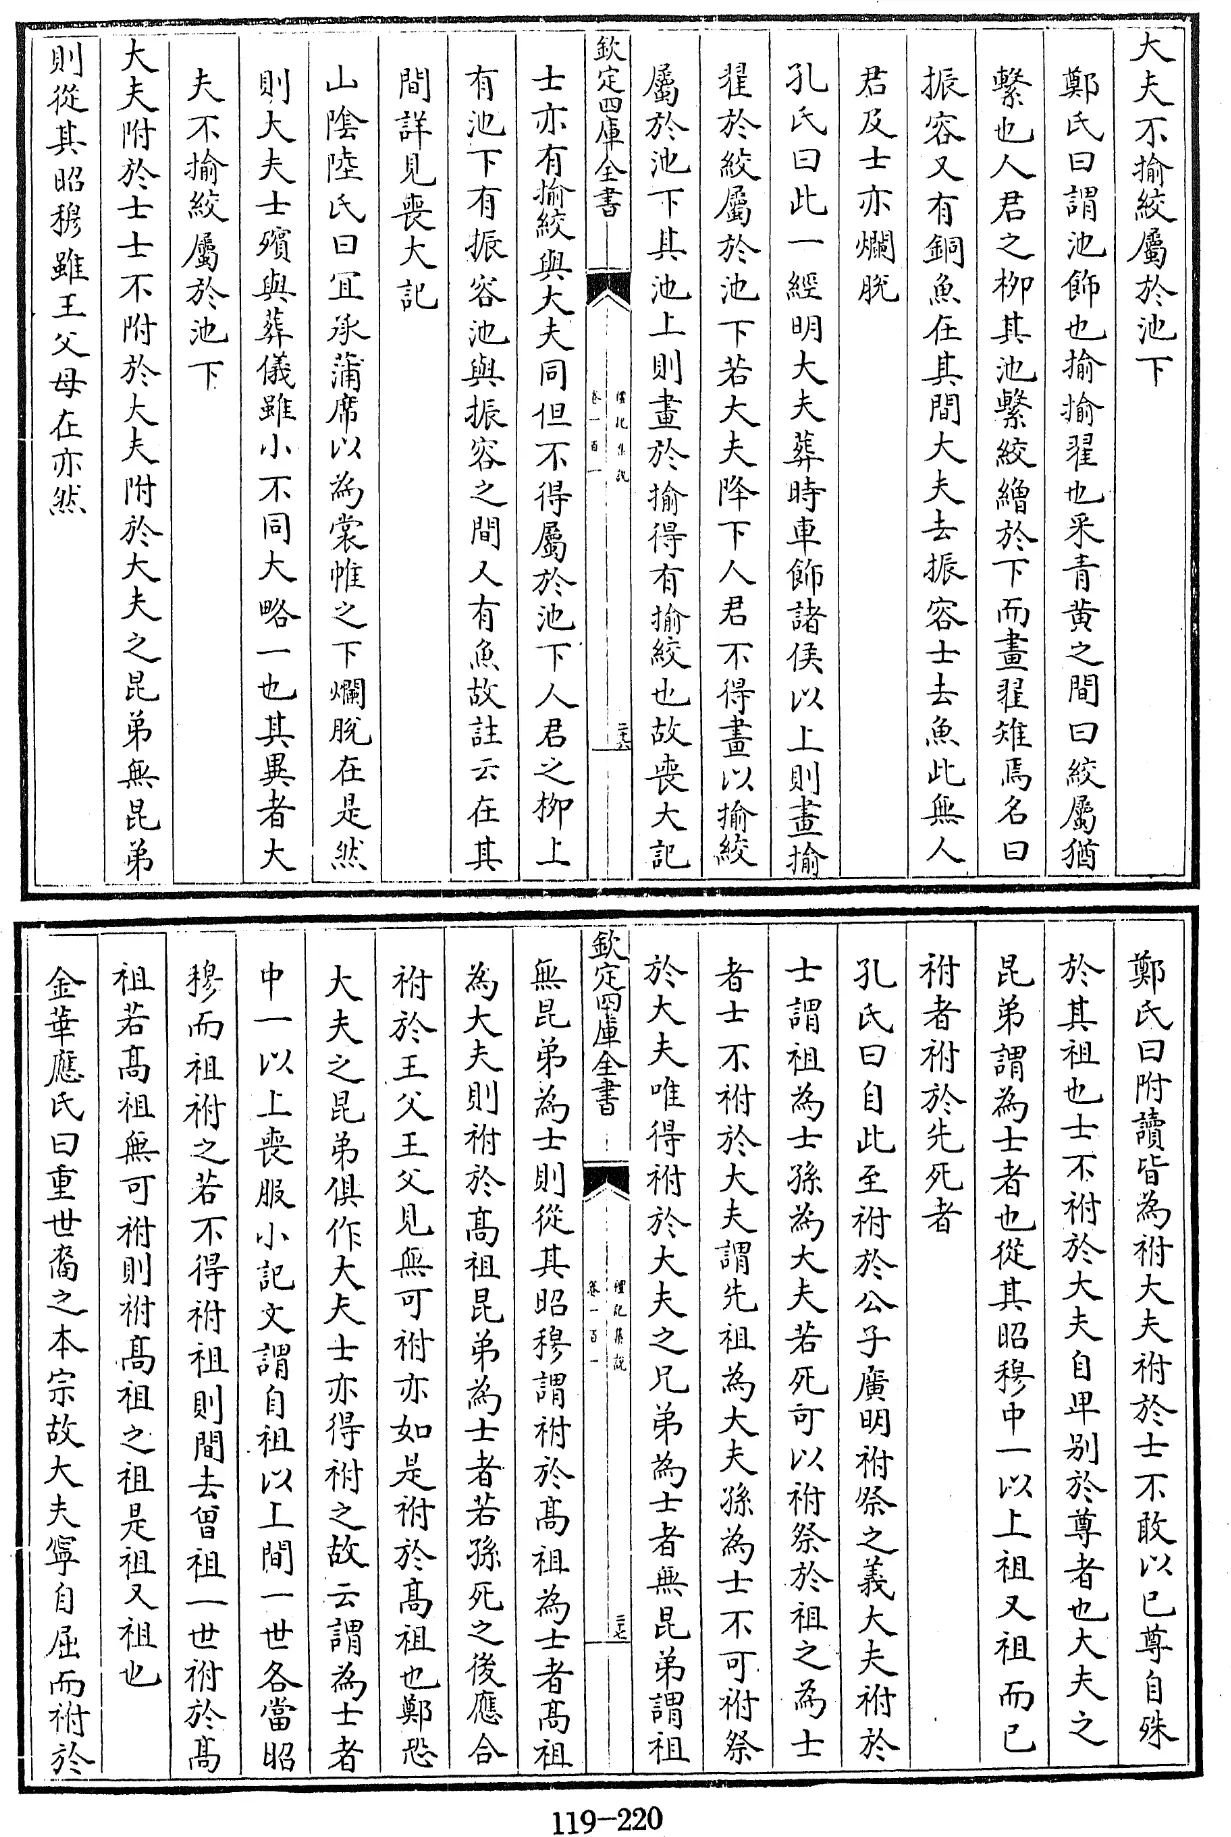 大夫不揄絞屬於池下
鄭氏曰謂池飾也揄揄翟也采青黄之間曰絞屬猶
繫也人君之柳其池繫絞繒於下而畫翟雉焉名曰
振容又有銅魚在其間大夫去振容士去魚此無人
君及士亦爛脫
孔氏曰此一經明大夫葬時車飾諸侯以上則畫揄
翟於絞屬於池下若大夫降下人君不得畫以揄絞
屬於池下其池上則畫於揄得有揄絞也故喪大記
欽定四庫全書
禮記集説
卷一百一
二十六
士亦有揄絞與大夫同但不得屬於池下人君之柳上
有池下有振容池與振容之間又有魚故註云在其
間詳見喪大記
山陰陸氏曰宜承蒲席以為裳帷之下爛脫在是然
則大夫士殯與葬儀雖小不同大略一也其異者大
夫不揄絞屬於池下
大夫附於士士不附於大夫附於大夫之昆弟無昆弟
則從其昭穆雖王父母在亦然
鄭氏曰附讀皆為祔大夫祔於士不敢以已尊自殊
於其祖也士不祔於大夫自卑别於尊者也大夫之
昆弟謂為士者也從其昭穆中一以上祖又祖而已
祔者祔於先死者
孔氏曰自此至祔於公子廣明祔祭之義大夫祔於
士謂祖為士孫為大夫若死可以祔祭於祖之為士
者士不祔於大夫謂先祖為大夫孫為士不可祔祭
於大夫唯得祔於大夫之兄弟為士者無昆弟謂祖
欽定四庫全書
禮記集説
卷一百一
二十七
無昆弟為士則從其昭穆謂祔於髙祖為士者髙祖
為大夫則祔於髙祖昆弟為士者若孫死之後應合
祔於王父王父見無可祔亦如是祔於髙祖也鄭恐
大夫之昆弟俱作大夫士亦得祔之故云謂為士者
中一以上喪服小記文謂自祖以上間一世各當昭
穆而祖祔之若不得祔祖則間去曾祖一世祔於髙
祖若髙祖無可祔則祔髙祖之祖是祖又祖也
金華應氏曰重世裔之本宗故大夫寧自屈而祔於
119-220